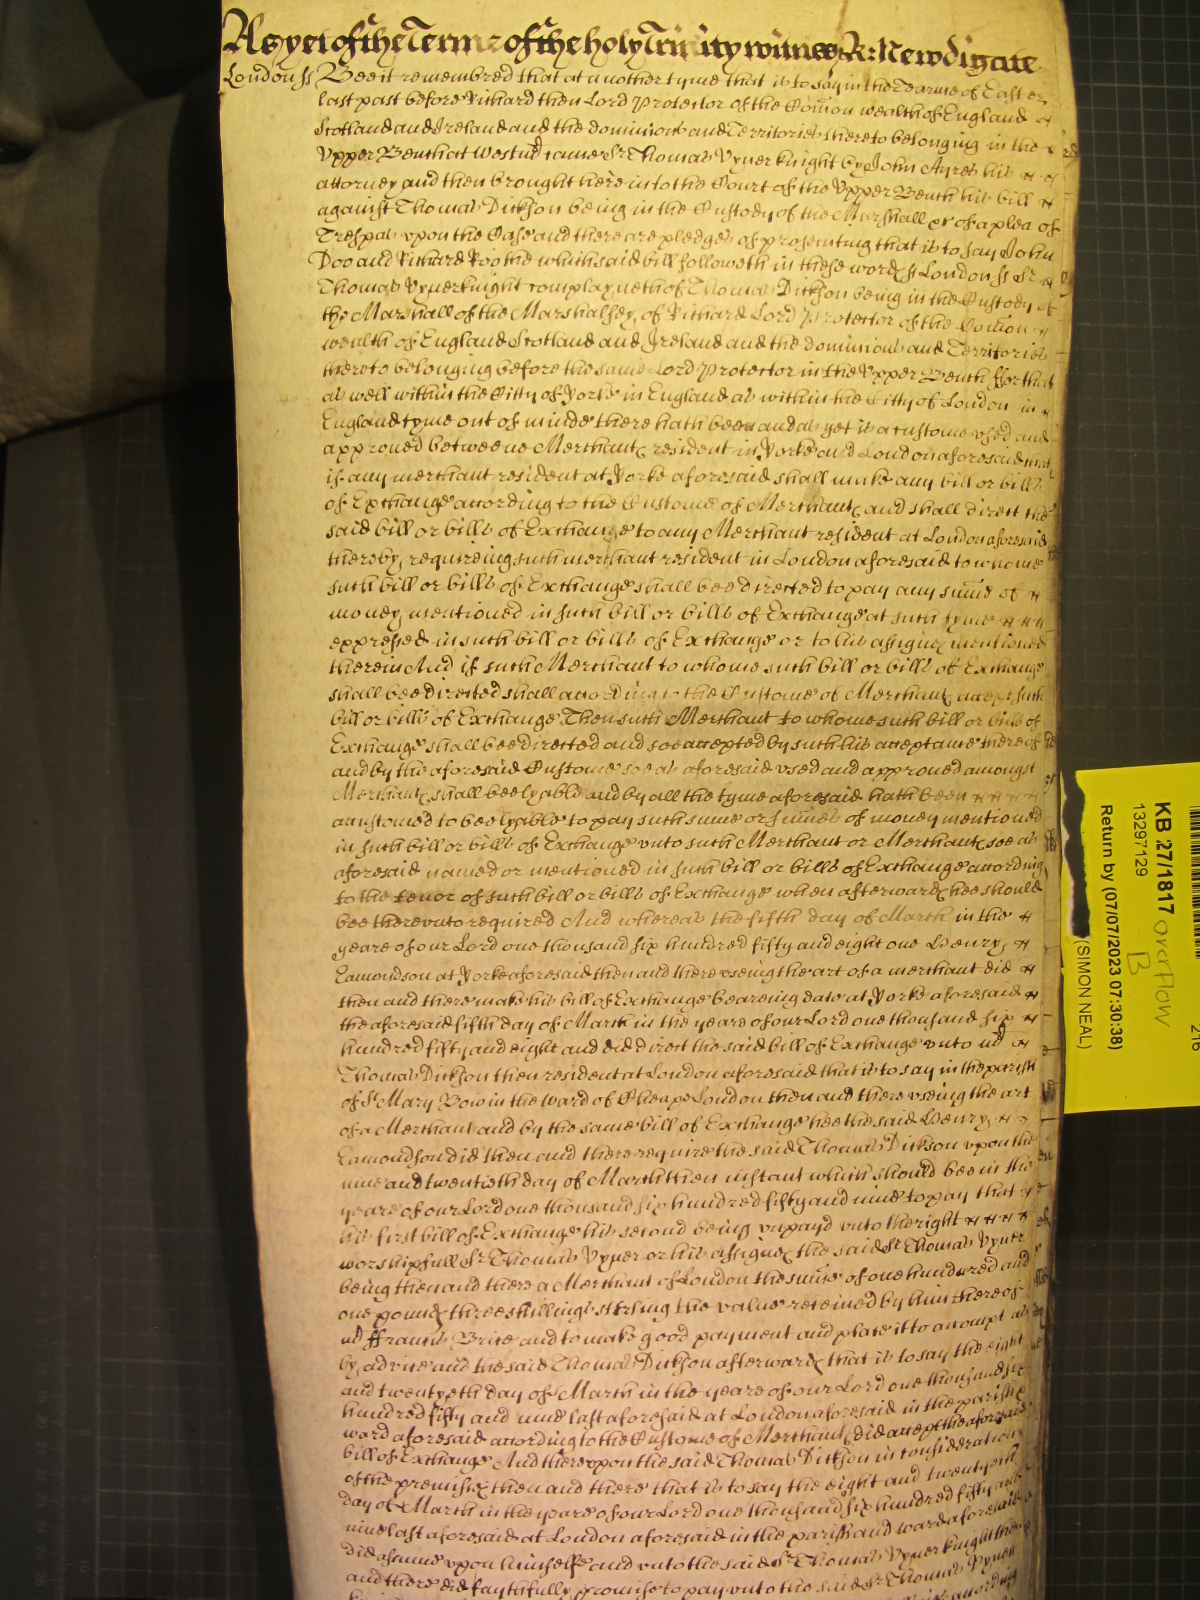 As yet of the Terme of the holy Trinity witnes R: Newdigate
London ss Bee it remembred that at another tyme that is to say in the Tearme of Easter
last past before Richard then Lord Protector of the Comon wealth of England
Scotland and Ireland and the dominions and Territories thereto belonging in the
Vpper Bench at Westmr came Sr Thomas Vyner knight by John Ayres his
attorney and then brought here into the Court of the Vpper Bench his bill
against Thomas Dickson being in the Custody of the Marshall &c of a plea of
Trespas vpon the Case and there are pledges of prosecuting that is to say John
Doo and Richard Roo the which said bill followeth in these words ss London ss Sr
Thomas Vyner knight complayneth of Thomas Dickson being in the Custody of
the Marshall of the Marshalsey of Richard Lord Protector of the Comon
wealth of England Scotland and Ireland and the dominions and Territories
thereto belonging before the same Lord Protector in the Vpper Bench ffor that
as well within the Citty of Yorke in England as within the Citty of London in
England tyme out of minde there hath been and as yet is a custome vsed and
approued betweene Merchants resident in Yorke and London aforesaid that
if any merchant resident at Yorke aforesaid shall make any bill or bills
of Exchange according to the Custome of Merchants and shall direct the
said bill or bills of Exchange to any Merchant resident at London aforesaid
thereby requireing such merchant resident in London aforesaid to whome
such bill or bills of Exchange shall bee directed to pay any sume of
money mentioned in such bill or bills of Exchange at such tyme
expressed in such bill or bills of Exchange or to his assignes mentioned
therein And if such Merchant to whome such bill or bills of Exchange
shall bee directed shall according to the Custome of Merchants accept such
bill or bills of Exchange Then such Merchant to whome such bill or bills of
Exchange shall bee directed and soe accepted by such his acceptance thereof
and by the aforesaid Custome soe as aforesaid vsed and approued amongst
Merchants shall bee lyable and by all the tyme aforesaid hath been
accustomed to bee lyable to pay such sume or sumes of money mentioned
in such bill or bills of Exchange vnto such Merchant or Merchants soe as
aforesaid named or mentioned in such bill or bills of Exchange according
to the tenor of such bill or bills of Exchange when afterwards hee should
bee therevnto required And whereas the fifth day of March in the
yeare of our Lord one thousand six hundred fifty and eight one Henry
Eamondson at Yorke aforesaid then and there vseing the art of a merchant did
then and there make his bill of Exchange beareing date at Yorke aforesaid
the aforesaid fifth day of March in the yeare of our Lord one thousand six
hundred fifty and eight and did direct the said bill of Exchange vnto mr
Thomas Dickson then resident at London aforesaid that is to say in the parish
of St Mary Bow in the ward of Cheape London then and there vseing the art
of a Merchant and by the same bill of Exchange hee the said Henry
Eamondson did then and there require the said Thomas Dickson vpon the
nine and twentieth day of March then instant which should bee in the
yeare of our Lord one thousand six hundred fifty and nine to pay that
his first bill of Exchange his second being vnpayd vnto the right
worshipfull Sr Thomas Vyner or his assignes the said Sr Thomas Vyner
being then and there a Merchant of London the sume of one hundred and
one pounds three shillings sterling the value receiued by him there of
mr ffrancis Brice and to make good payment and place it to accompt as
by advice and the said Thomas Dickson afterwards that is to say the eight
and twentyeth day of March in the yeare of our Lord one thousand six
hundred fifty and nine last aforesaid at London aforesaid in the parish &
ward aforesaid according to the Custome of Merchants did accept the aforesaid
bill of Exchange And therevpon the said Thomas Dickson in consideration
of the premisses then and there that is to say the eight and twentyeth
day of March in the yeare of our Lord one thousand six hundred fifty and
nine last aforesaid at London aforesaid in the parish and ward aforesaid
did assume vpon himselfe and vnto the said Sr Thomas Vyner knight then
and there did faythfully promise to pay vnto the said Sr Thomas Vyner
KB 27/1817 overflow
B
13297129
Return by (07/07/2023 07:30:38)
(SIMON NEAL)